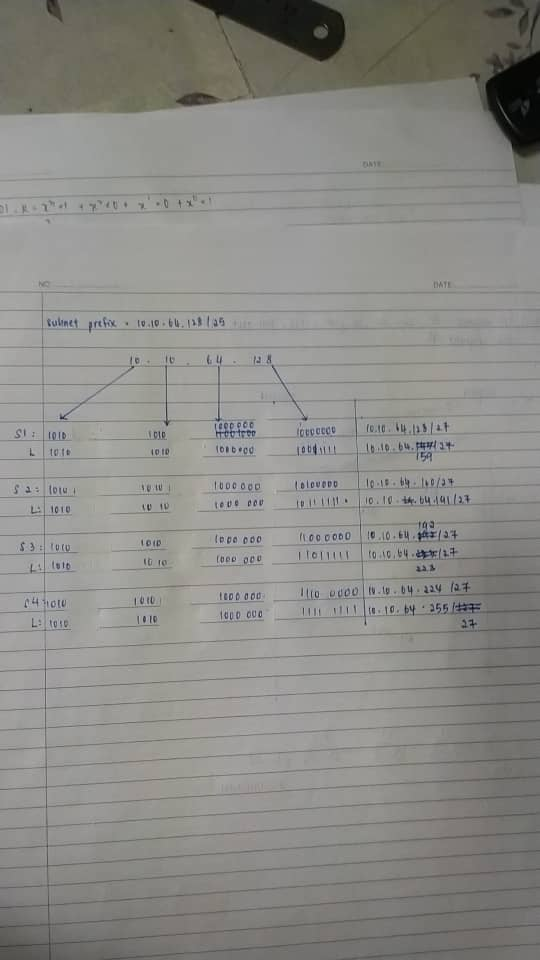 DATE
NO
DATE
subnet prefix = 10.10.64.128/25
10 . 10 . 64 . 128
S1: 1010 1010 1000 000 10000000 10.10.64.128/27
L 1010 1010 1000000 10011111 10.10.64.159/27
S2: 1010 1010 1000000 10100000 10.10.64.160/27
L: 1010 1010 1000 000 10111111 10.10.64.191/27
S3: 1010 1010 1000 000 11000000 10.10.64.192/27
L: 1010 1010 1000 000 11011111 10.10.64.223/27
S4: 1010 1010 1000 000 1110 0000 10.10.64.224/27
L: 1010 1010 1000 000 1111 1111 10.10.64.255/27